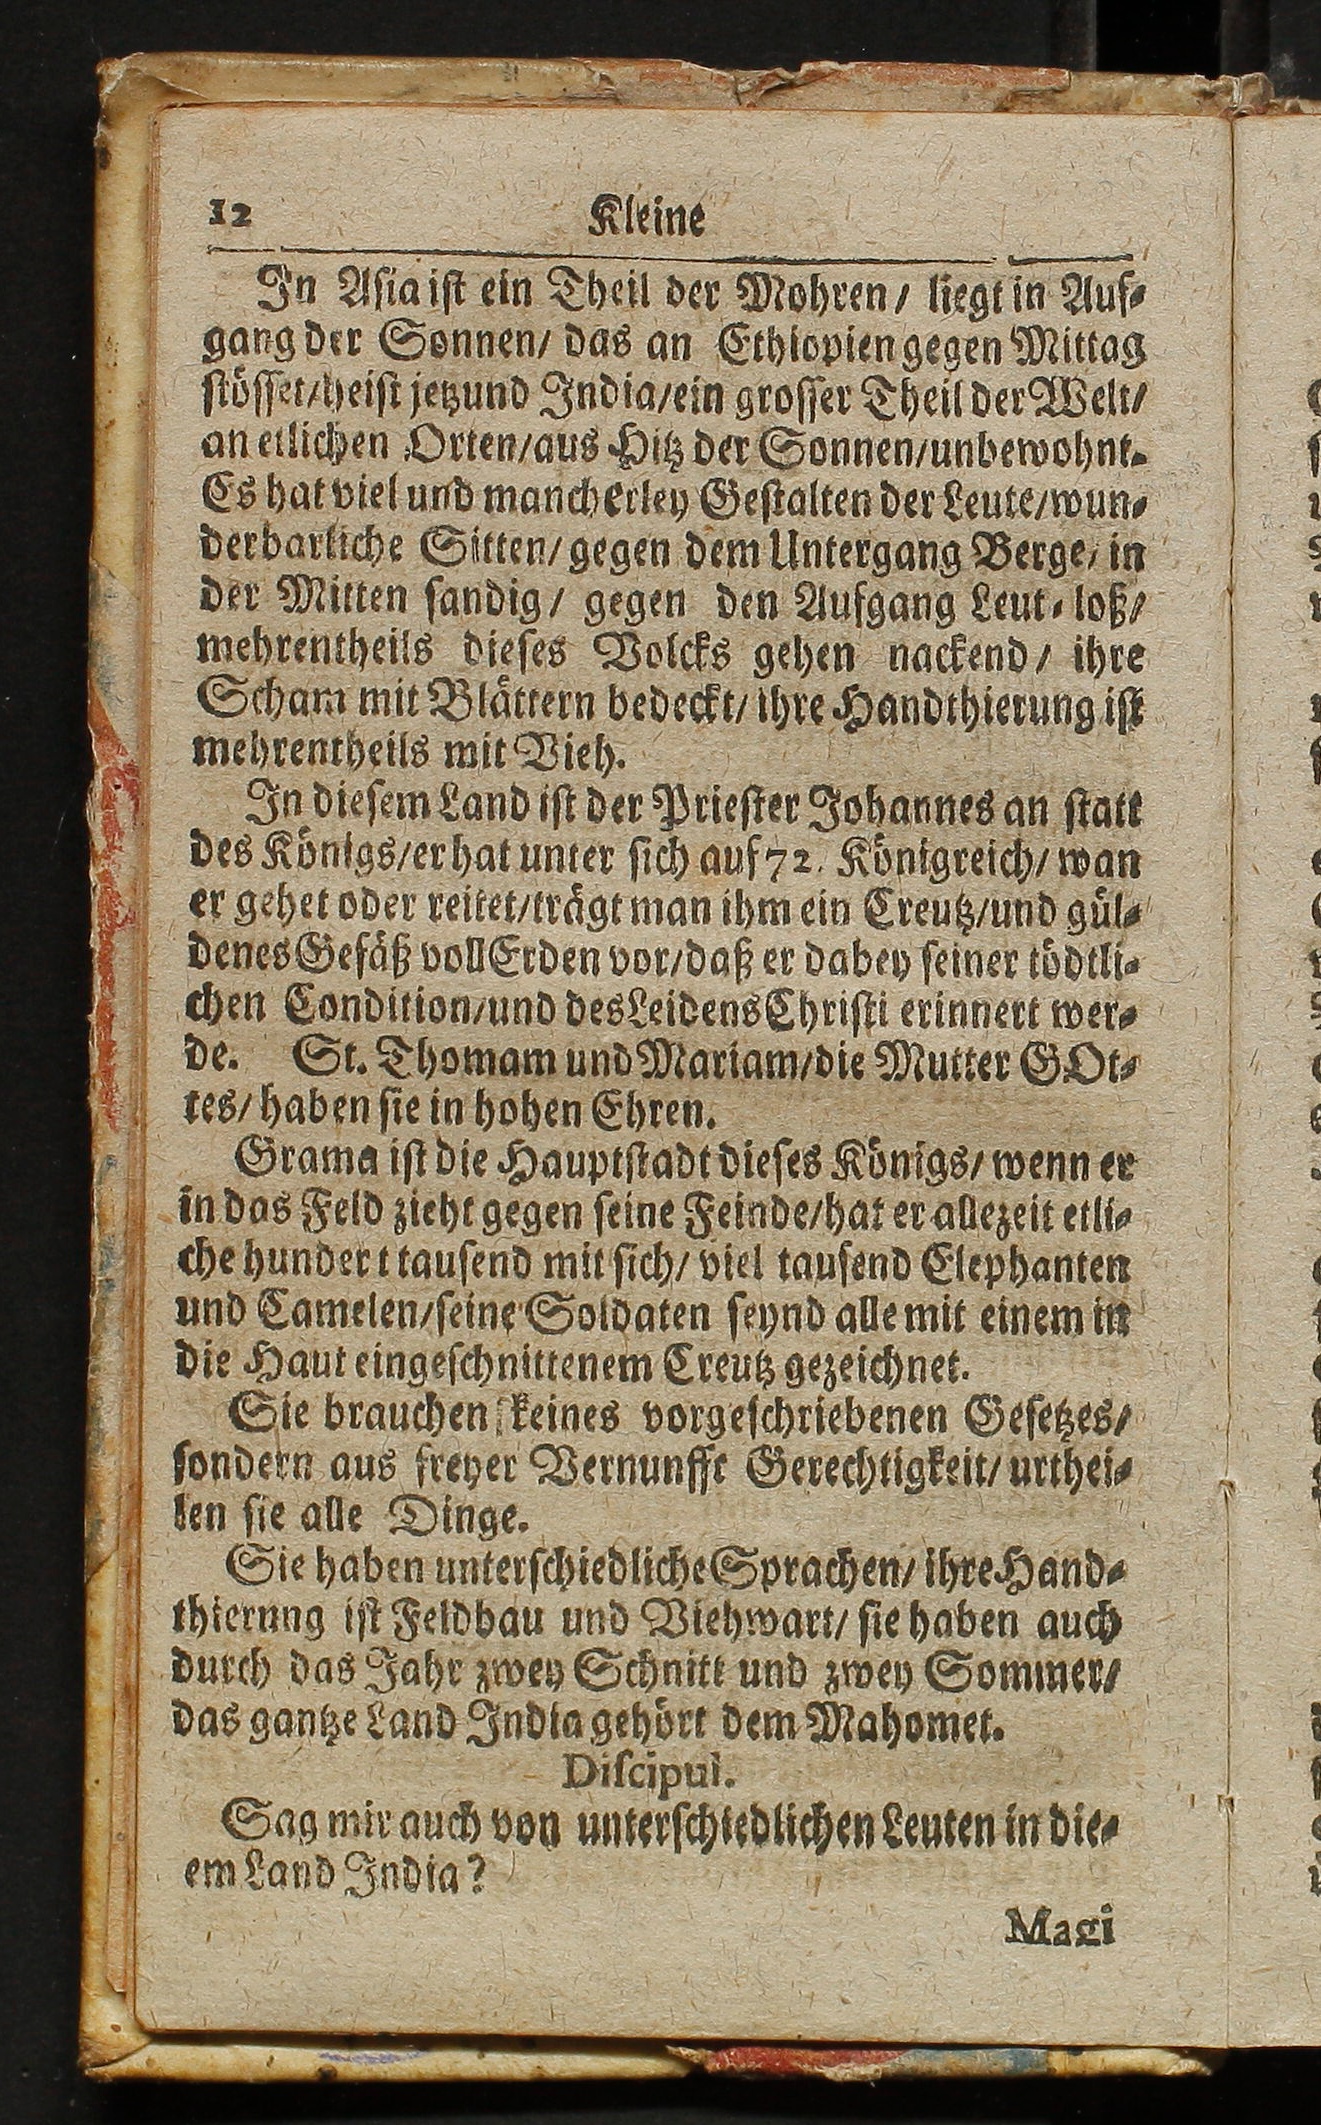 12 Kleine
In Asia ist ein Theil der Mohren/ liegt in Auf-
gang der Sonnen/ das an Ethiopien gegen Mittag
stösset/heist jetzund India/ein grosser Theil der Welt/
an etlichen Orten/aus Hitz der Sonnen/unbewohnt.
Es hat viel und mancherley Gestalten der Leute/wun-
derbarliche Sitten/ gegen dem Untergang Berge/ in
der Mitten sandig/ gegen den Aufgang Leut-loß/
mehrentheils dieses Volcks gehen nackend/ ihre
Scham mit Blättern bedeckt/ ihre Handthierung ist
mehrentheils mit Vieh.
In diesem Land ist der Priester Johannes an statt
des Königs/er hat unter sich auf 72. Königreich/ wan
er gehet oder reitet/trägt man ihm ein Creutz/und gül-
denes Gefäß voll Erden vor/daß er dabey seiner tödtli-
chen Condition/und des Leidens Christi erinnert wer-
de. St. Thomam und Mariam/die Mutter GOt-
tes/ haben sie in hohen Ehren.
Grama ist die Hauptstadt dieses Königs/ wenn er
in das Feld zieht gegen seine Feinde/hat er allezeit etli-
che hundert tausend mit sich/ viel tausend Elephanten
und Camelen/seine Soldaten seynd alle mit einem in
die Haut eingeschnittenem Creutz gezeichnet.
Sie brauchen keines vorgeschriebenen Gesetzes/
sondern aus freyer Vernunfft Gerechtigkeit/ urthei-
len sie alle Dinge.
Sie haben unterschiedliche Sprachen/ ihre Hand-
thierung ist Feldbau und Viehwart/ sie haben auch
durch das Jahr zwey Schnitt und zwey Sommer/
das gantze Land India gehört dem Mahomet.
Discipul.
Sag mir auch von unterschiedlichen Leuten in die-
em Land India?
Magi